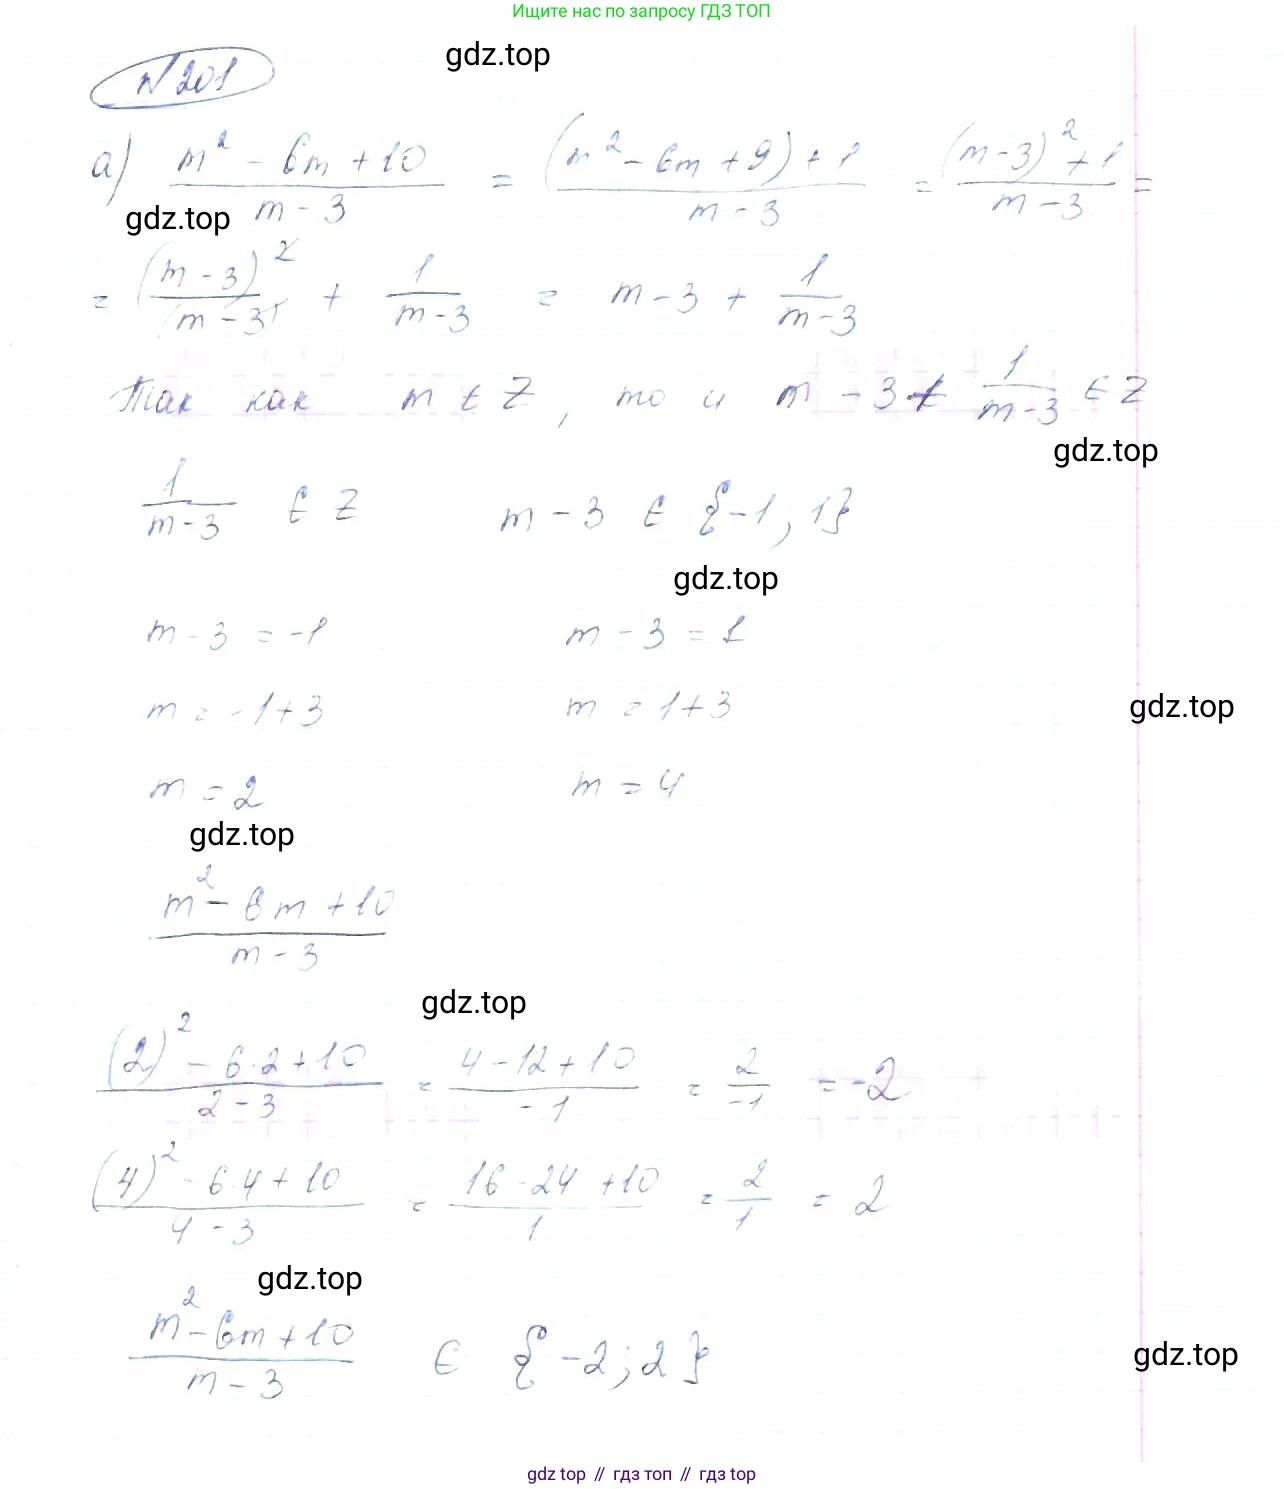 Ищите нас по запросу ГДЗ ТОП
gdz.top
N 201
а) (m² - 6m + 10)/(m - 3) = ((m² - 6m + 9) + 1)/(m - 3) = ((m-3)² + 1)/(m-3) =
gdz.top
= (m-3)²/(m-3) + 1/(m-3) = m - 3 + 1/(m-3)
Так как m ∈ Z, то и m - 3 + 1/(m-3) ∈ Z
gdz.top
1/(m-3) ∈ Z m - 3 ∈ {-1; 1}
gdz.top
m - 3 = -1 m - 3 = 1
m = -1+3 m = 1+3
gdz.top
m = 2 m = 4
gdz.top
(m² - 6m + 10)/(m - 3)
gdz.top
((2)² - 6·2 + 10)/(2 - 3) = (4 - 12 + 10)/(-1) = 2/(-1) = -2
((4)² - 6·4 + 10)/(4 - 3) = (16 - 24 + 10)/1 = 2/1 = 2
gdz.top
(m² - 6m + 10)/(m - 3) ∈ {-2; 2}
gdz.top
gdz top // гдз топ // гдз top